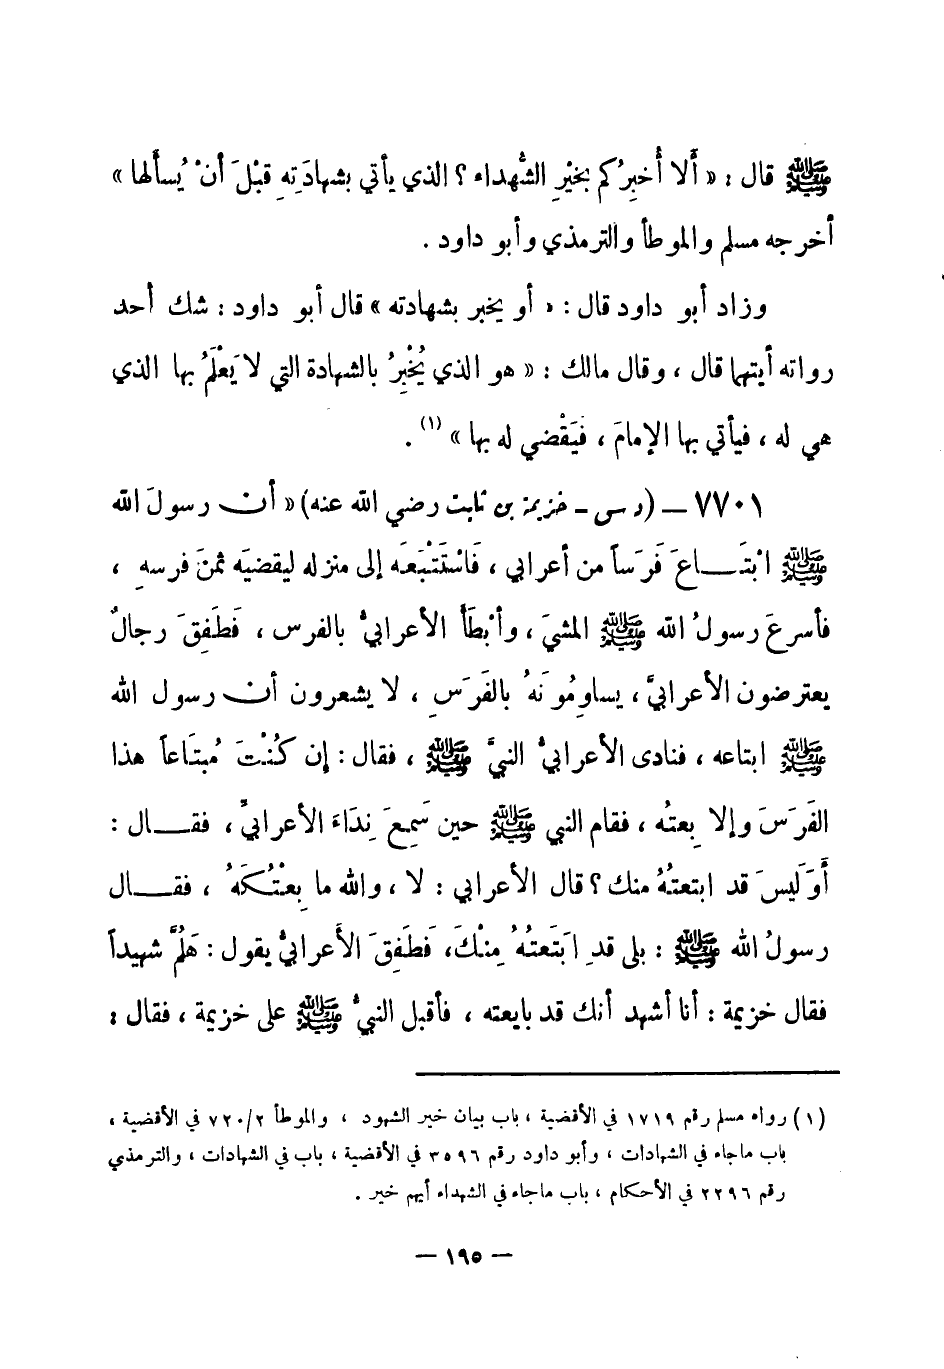 ﷺ قال : « أَلا أُخبِرُكم بخيْرِ الشُّهداء ؟ الذي يأتي بشهادَتِهِ قبْلَ أنْ يُسألها »
أخرجه مسلم والموطأ والترمذي وأبو داود .
وزاد أبو داود قال : « أو يخبر بشهادته » قال أبو داود : شك أحد
رواته أيتهما قال ، وقال مالك : « هو الذي يُخْبِرُ بالشهادة التي لا يَعْلَمُ بها الذي
هي له ، فيأتي بها الإمامَ ، فَيَقْضي له بها » (١) .
٧٧٠١ – (د س - خزيمة بن ثابت رضي الله عنه) « أن رسولَ الله
ﷺ ابْتَـاعَ فَرَساً من أعرابي ، فَاسْتَتْبَعَه إلى منزله ليقضيَه ثمنَ فرسهِ ،
فأسرعَ رسولُ الله ﷺ المشيَ ، وأبْطَأَ الأعرابيُّ بالفرس ، فَطَفِقَ رجالٌ
يعترضون الأعرابيَّ ، يساوِمُونَهُ بالفَرَسِ ، لا يشعرون أن رسول الله
ﷺ ابتاعه ، فنادى الأعرابيُّ النبيَّ ﷺ ، فقال : إن كُنْتَ مُبتَاعاً هذا
الفَرَسَ وإلا بِعتُه ، فقام النبي ﷺ حين سَمِعَ نِدَاءَ الأعرابيِّ ، فقـال :
أَوَلَيسَ قد ابتعتُهُ منك ؟ قال الأعرابي : لا ، والله ما بِعْتُكَهُ ، فقـال
رسولُ الله ﷺ : بلى قدِ ابَتَعتُهُ مِنْكَ، فَطَفِقَ الأَعرابيُّ يقول : هَلُمَّ شهيداً
فقال خزيمة : أنا أشهد أنك قد بايعته ، فأقبل النبيُّ ﷺ على خزيمة ، فقال :
(١) رواه مسلم رقم ١٧١٩ في الأقضية ، باب بيان خير الشهود ، والموطأ ٧٢٠/٢ في الأقضية ،
باب ماجاء في الشهادات ، وأبو داود رقم ٣٥٩٦ في الأقضية ، باب في الشهادات ، والترمذي
رقم ٢٢٩٦ في الأحكام ، باب ماجاء في الشهداء أيهم خير .
– ١٩٥ –